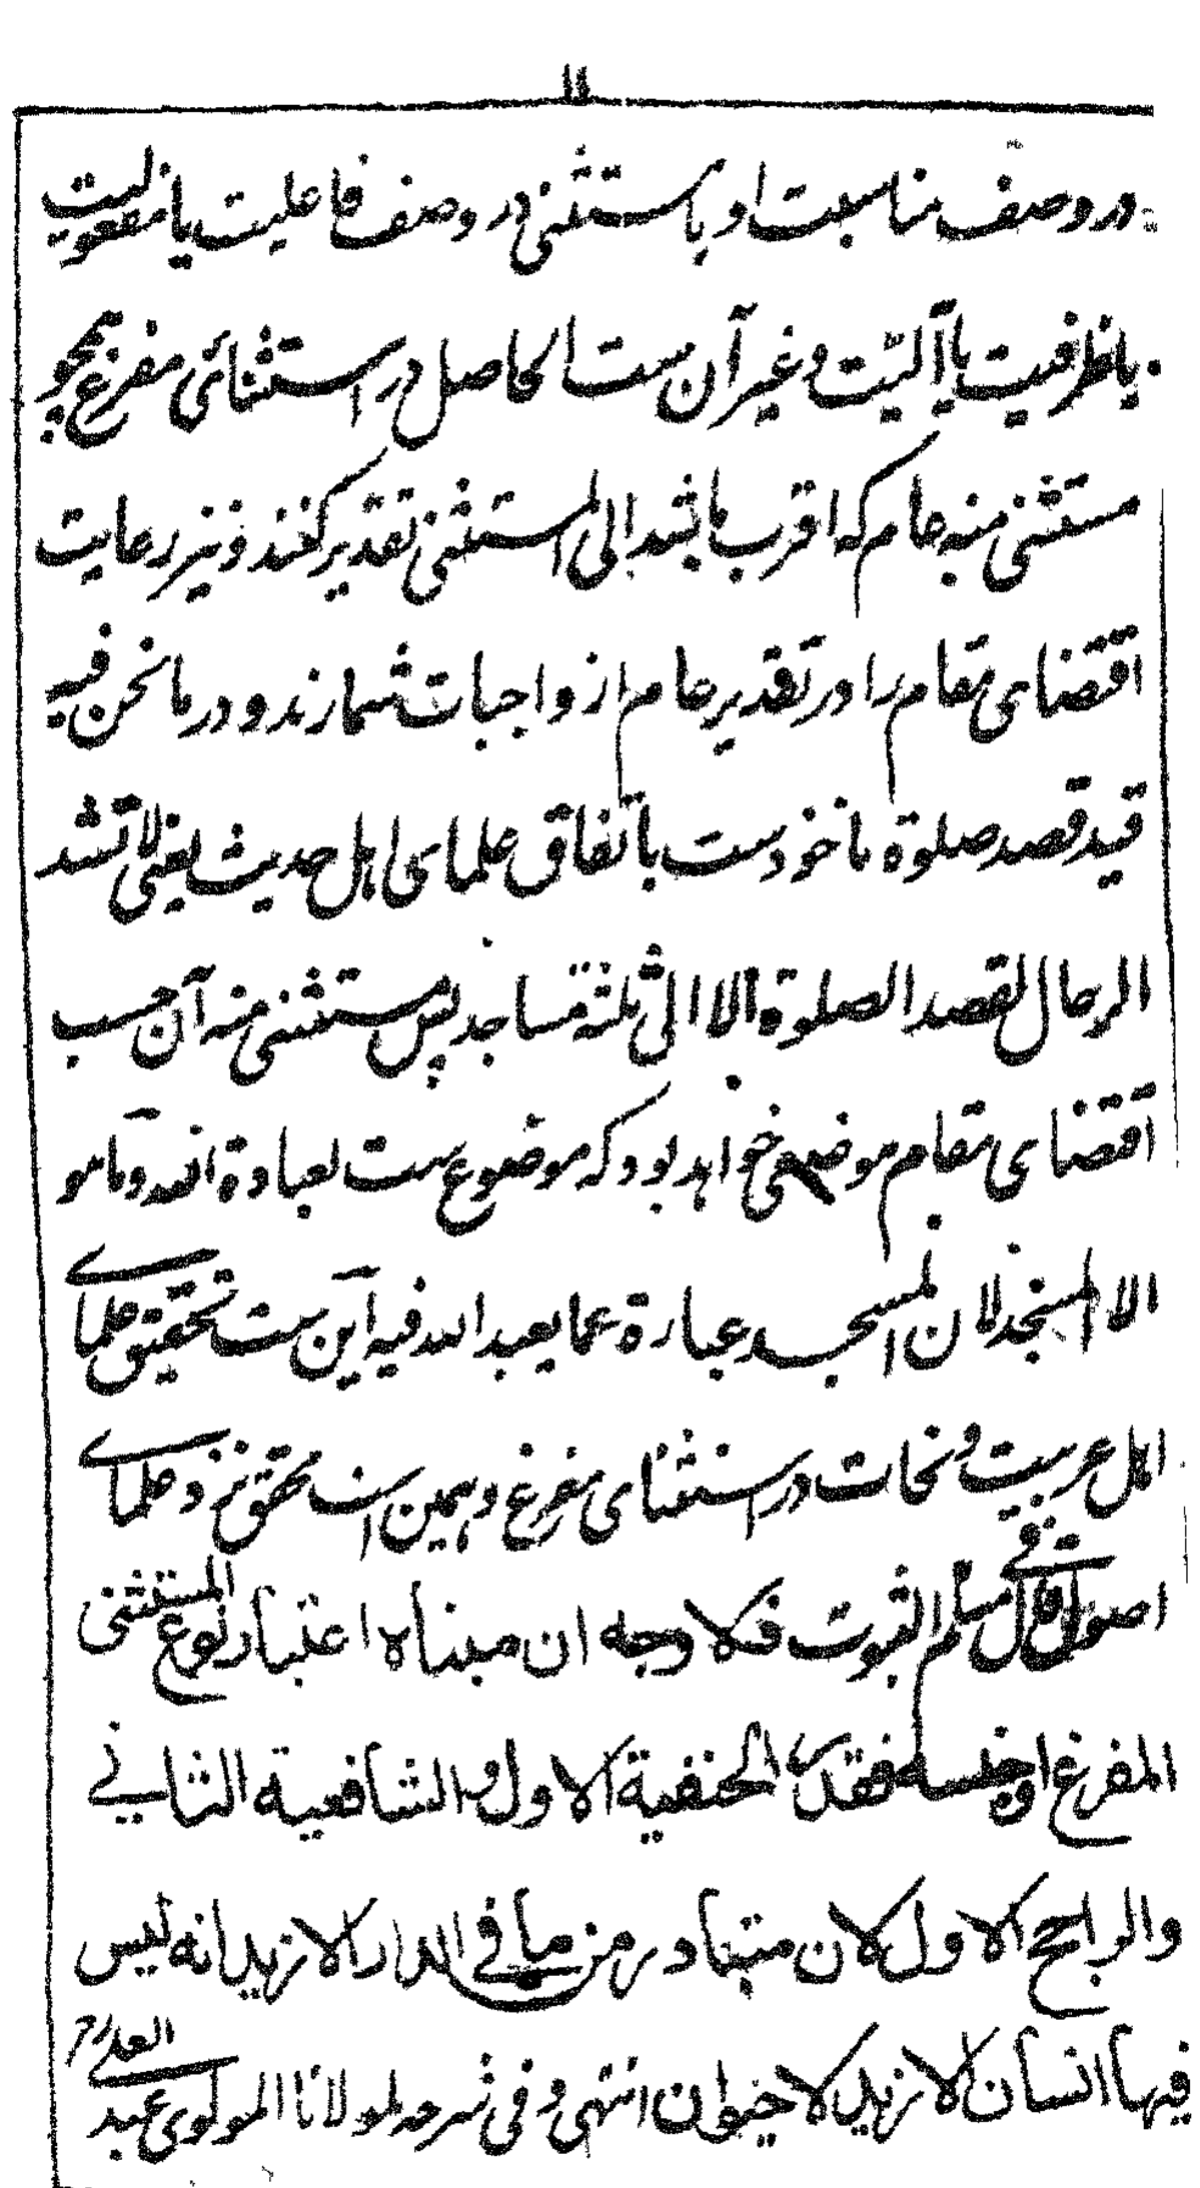 ۱۱
در وصف مناسبت او باستثنی در وصف فاعلیت یا مفعولیت
یا ظرفیت یا آلیّت و غیر آن ست الحاصل در استثنائی مفرغ نحو
مستثنی منه عام که اقرب باشد الی المستثنی تقدیر کنند و نیز رعایت
اقتضای مقام را در تقدیر عام از واجبات شمارند و در ما نحن فیه
قید قصد صلوة ماخوذ ست باتفاق علمای اهل حدیث یعنی لا تشد
الرحال لقصد الصلوة الا الی ثلثة مساجد پس مستثنی منه آن حسب
اقتضای مقام موضعی خواهد بود که موضوع ست لعبادة الله و ما هو
الا المسجد لان المسجد عبارة عما یعبد الله فیه این ست تحقیق علمای
اهل عربیت و نحات در استثنای مفرغ و همین است محقق نزد علمای
اصول قال فی مسلم الثبوت فلا وجه ان مبناه اعتبار نوع المستثنی
المفرغ او جنسه فقدر الحنفیة الاول و الشافعیة الثانی
والراجح الاول لان متبادر من ما فی الدار الا زید انه لیس
فیها انسان الا زید لا حیوان انتهی و فی شرحه لمولانا المولوی عبد
العلی رح